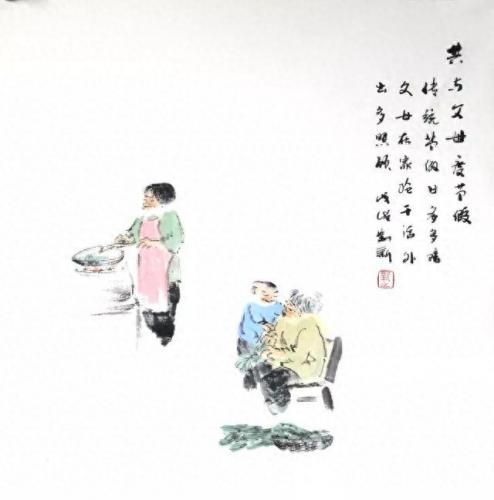 共与父母度节假
传统节假日多多陪
父母在家抢干活外
出多照顾 戊戌